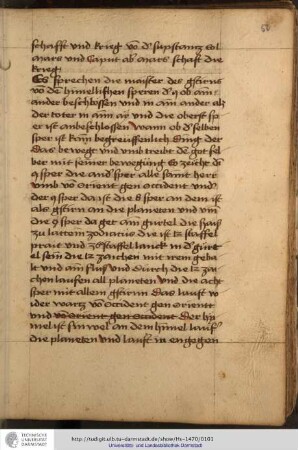 schafft vnd krieg vō d' supstantz sol
mars vnd Caput ab' mars schaft die
krieg
Es sprechen die maister des gstirns
vō dē himelischen speren d' 9 ob ain-
ander beschlossen vnd in ain ander als
der toter in aim air vnd die oberst sp
er ist anbeschlossen Wann ob d' selben
sper ist kain begreuffenlich ding der
das bewegt vnd vmb treibt dē gat sel
ber mit seiner bewegung So zeucht die
9 sper die and' sper alle sament herr
vmb vō orient gen occident vnd'
der 9 sper da ist die 8 sper an dem ist
als gstirn an die planeten vnd vmb
die 9 sper da get aim gurtel die hais
zu lattein zodiacus die ist 12 staffel
prait vnd 30 staffel lanck in d' gurt
el sein die 12 zaichen mit irem geha
lt vnd aim fluss vnd durch die 12 zai
chen lauffen all planeten vnd die acht
sper mit allem gstirn das lauft w
ider wartz vō occident gen orientt
vnd vō orient gen occident Der hi
mel ist sinwel an dem himel lauff
die planeten vnd lauft in engegen
TECHNISCHE
UNIVERSITÄT
DARMSTADT
http://tudigit.ulb.tu-darmstadt.de/show/Hs-1470/0101
Universitäts- und Landesbibliothek Darmstadt